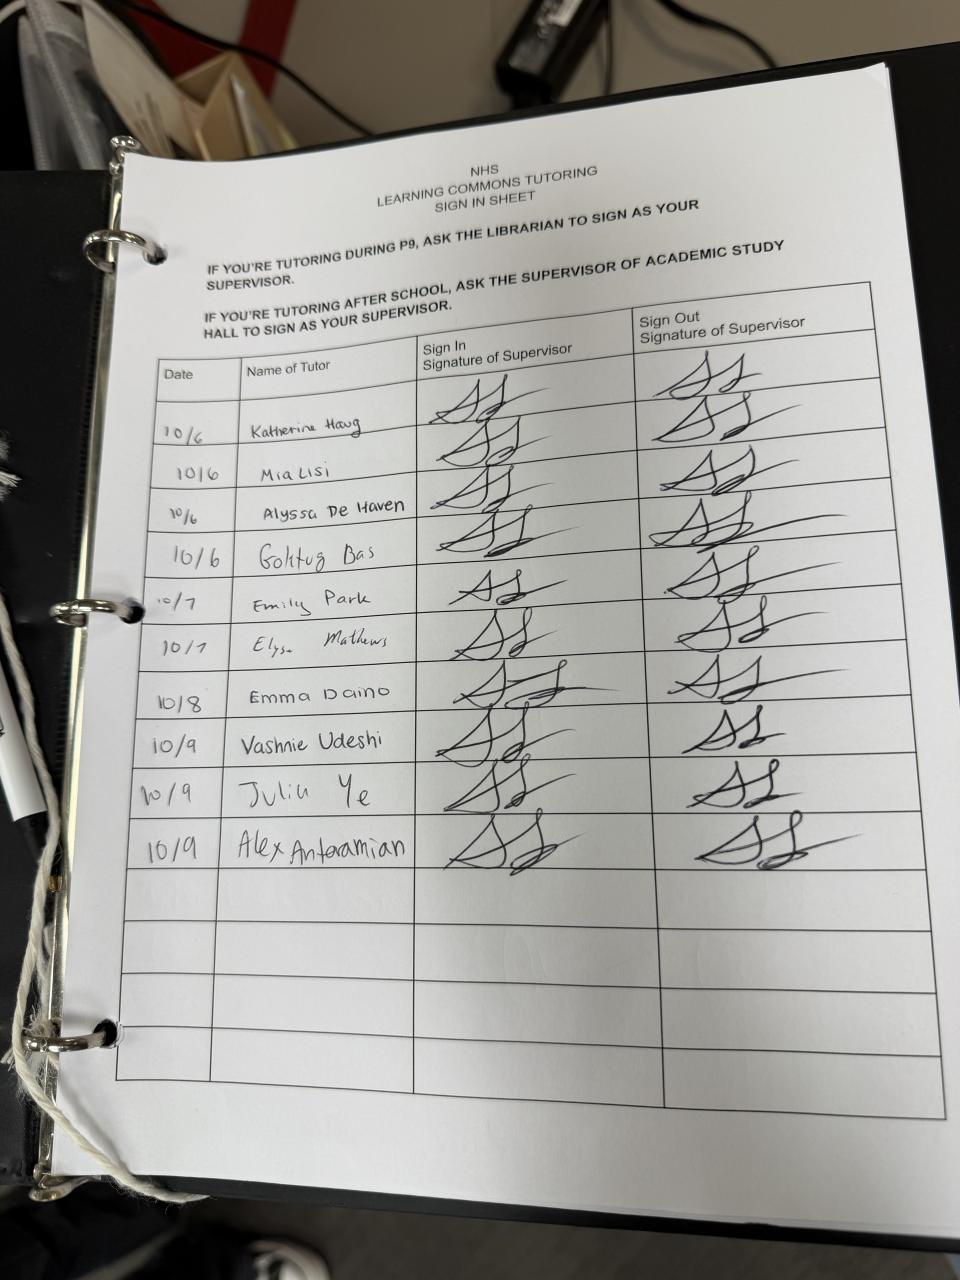 NHS
LEARNING COMMONS TUTORING
SIGN IN SHEET
IF YOU'RE TUTORING DURING P9, ASK THE LIBRARIAN TO SIGN AS YOUR
SUPERVISOR.
IF YOU'RE TUTORING AFTER SCHOOL, ASK THE SUPERVISOR OF ACADEMIC STUDY
HALL TO SIGN AS YOUR SUPERVISOR.
Date Name of Tutor Sign In Signature of Supervisor Sign Out Signature of Supervisor
10/6 Katherine Haug
10/6 Mia Lisi
10/6 Alyssa De Haven
10/6 Goktug Bas
10/7 Emily Park
10/7 Elysa Mathews
10/8 Emma Daino
10/9 Vashnie Udeshi
10/9 Julia Ye
10/9 Alex Anteramian